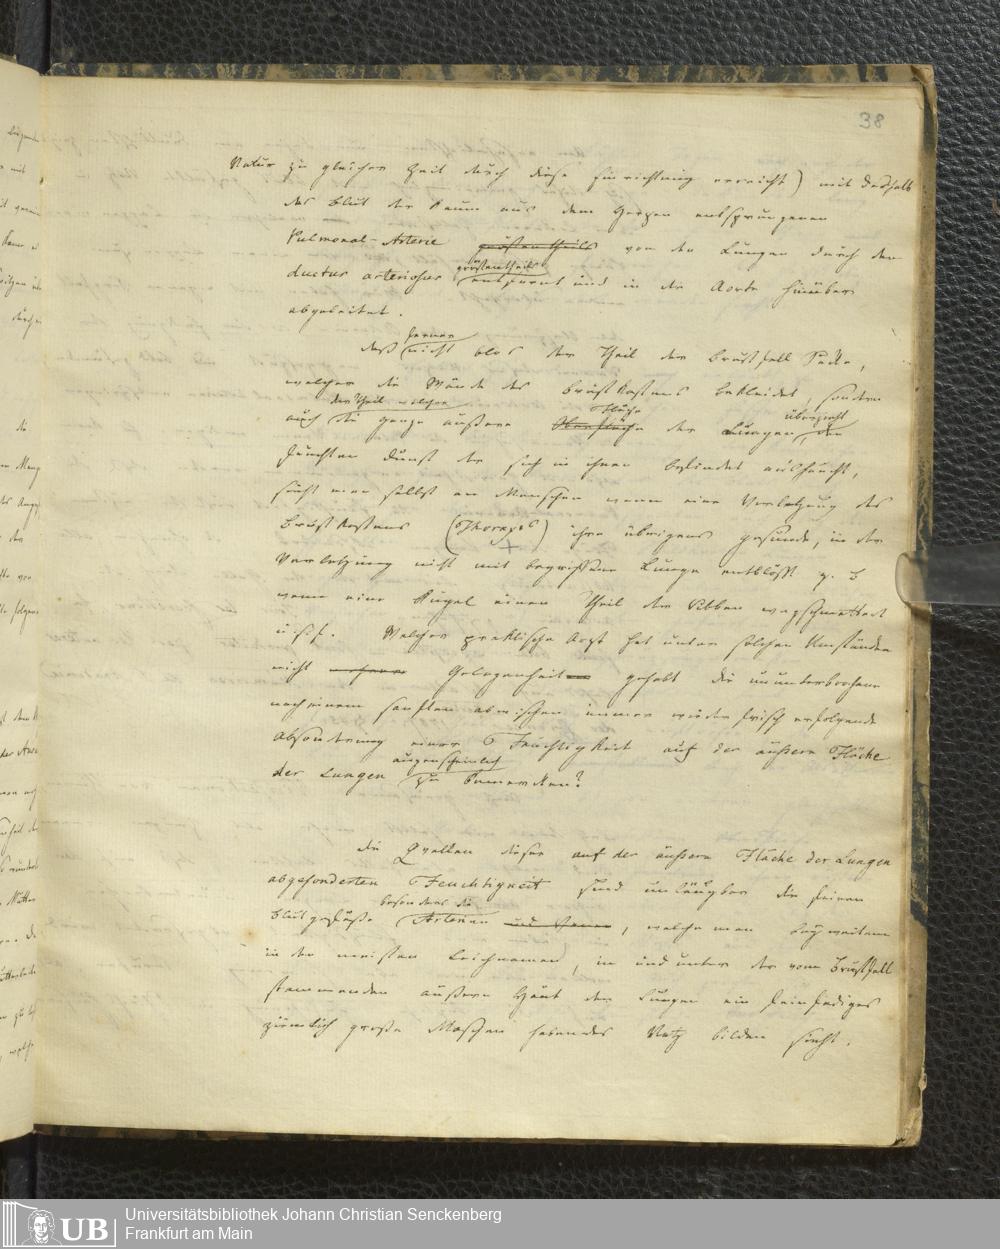 38
Natur zu gleicher Zeit durch diese Einrichtung erreicht) mit deshalb
das Blut der kaum aus dem Herzen entsprungenen
Pulmonal-Arterie größentheils von den Lungen durch den
größentheils
ductus arteriosus entfernt und in die Aorta hinüber
abgeleitet.
ferner
daß nicht blos der Theil der Brustfell Säcke,
welcher die Wände des Brustkastens bekleidet, sondern
der Theil welcher Fläche überzieht
auch die ganze äußere Oberfläche der Lungen, den
feuchten Dunst der sich in ihnen befindet aushaucht,
sieht man selbst am Menschen wenn eine Verletzung des
Brustkastens (Thorax's) ihre übrigens gesunde, in der
Verletzung nicht mit begriffene Lunge entblößt z. B
wenn eine Kugel einen Theil der Ribben wegschmettert
u.s.f. Welcher praktische Arzt hat unter solchen Umständen
nicht Gelegenheit gehabt die ununterbrochene
nach einem sanften abwischen immer wieder frisch erfolgende
Absonderung einer Feuchtigkeit auf der äußern Fläche
augenscheinlich
der Lungen zu bemerken?
die Quellen dieser auf der äußern Fläche der Lungen
abgesonderten Feuchtigkeit sind unläugbar die feinen
besonders die
Blutgefäße Arterien und Venen, welche man bey weitem
in den meisten Leichnamen, in und unter der vom Brustfell
stammenden äußern Haut der Lungen ein feinfadiges
ziemlich große Maschen habendes Netz bilden sieht.
UB
Universitätsbibliothek Johann Christian Senckenberg
Frankfurt am Main